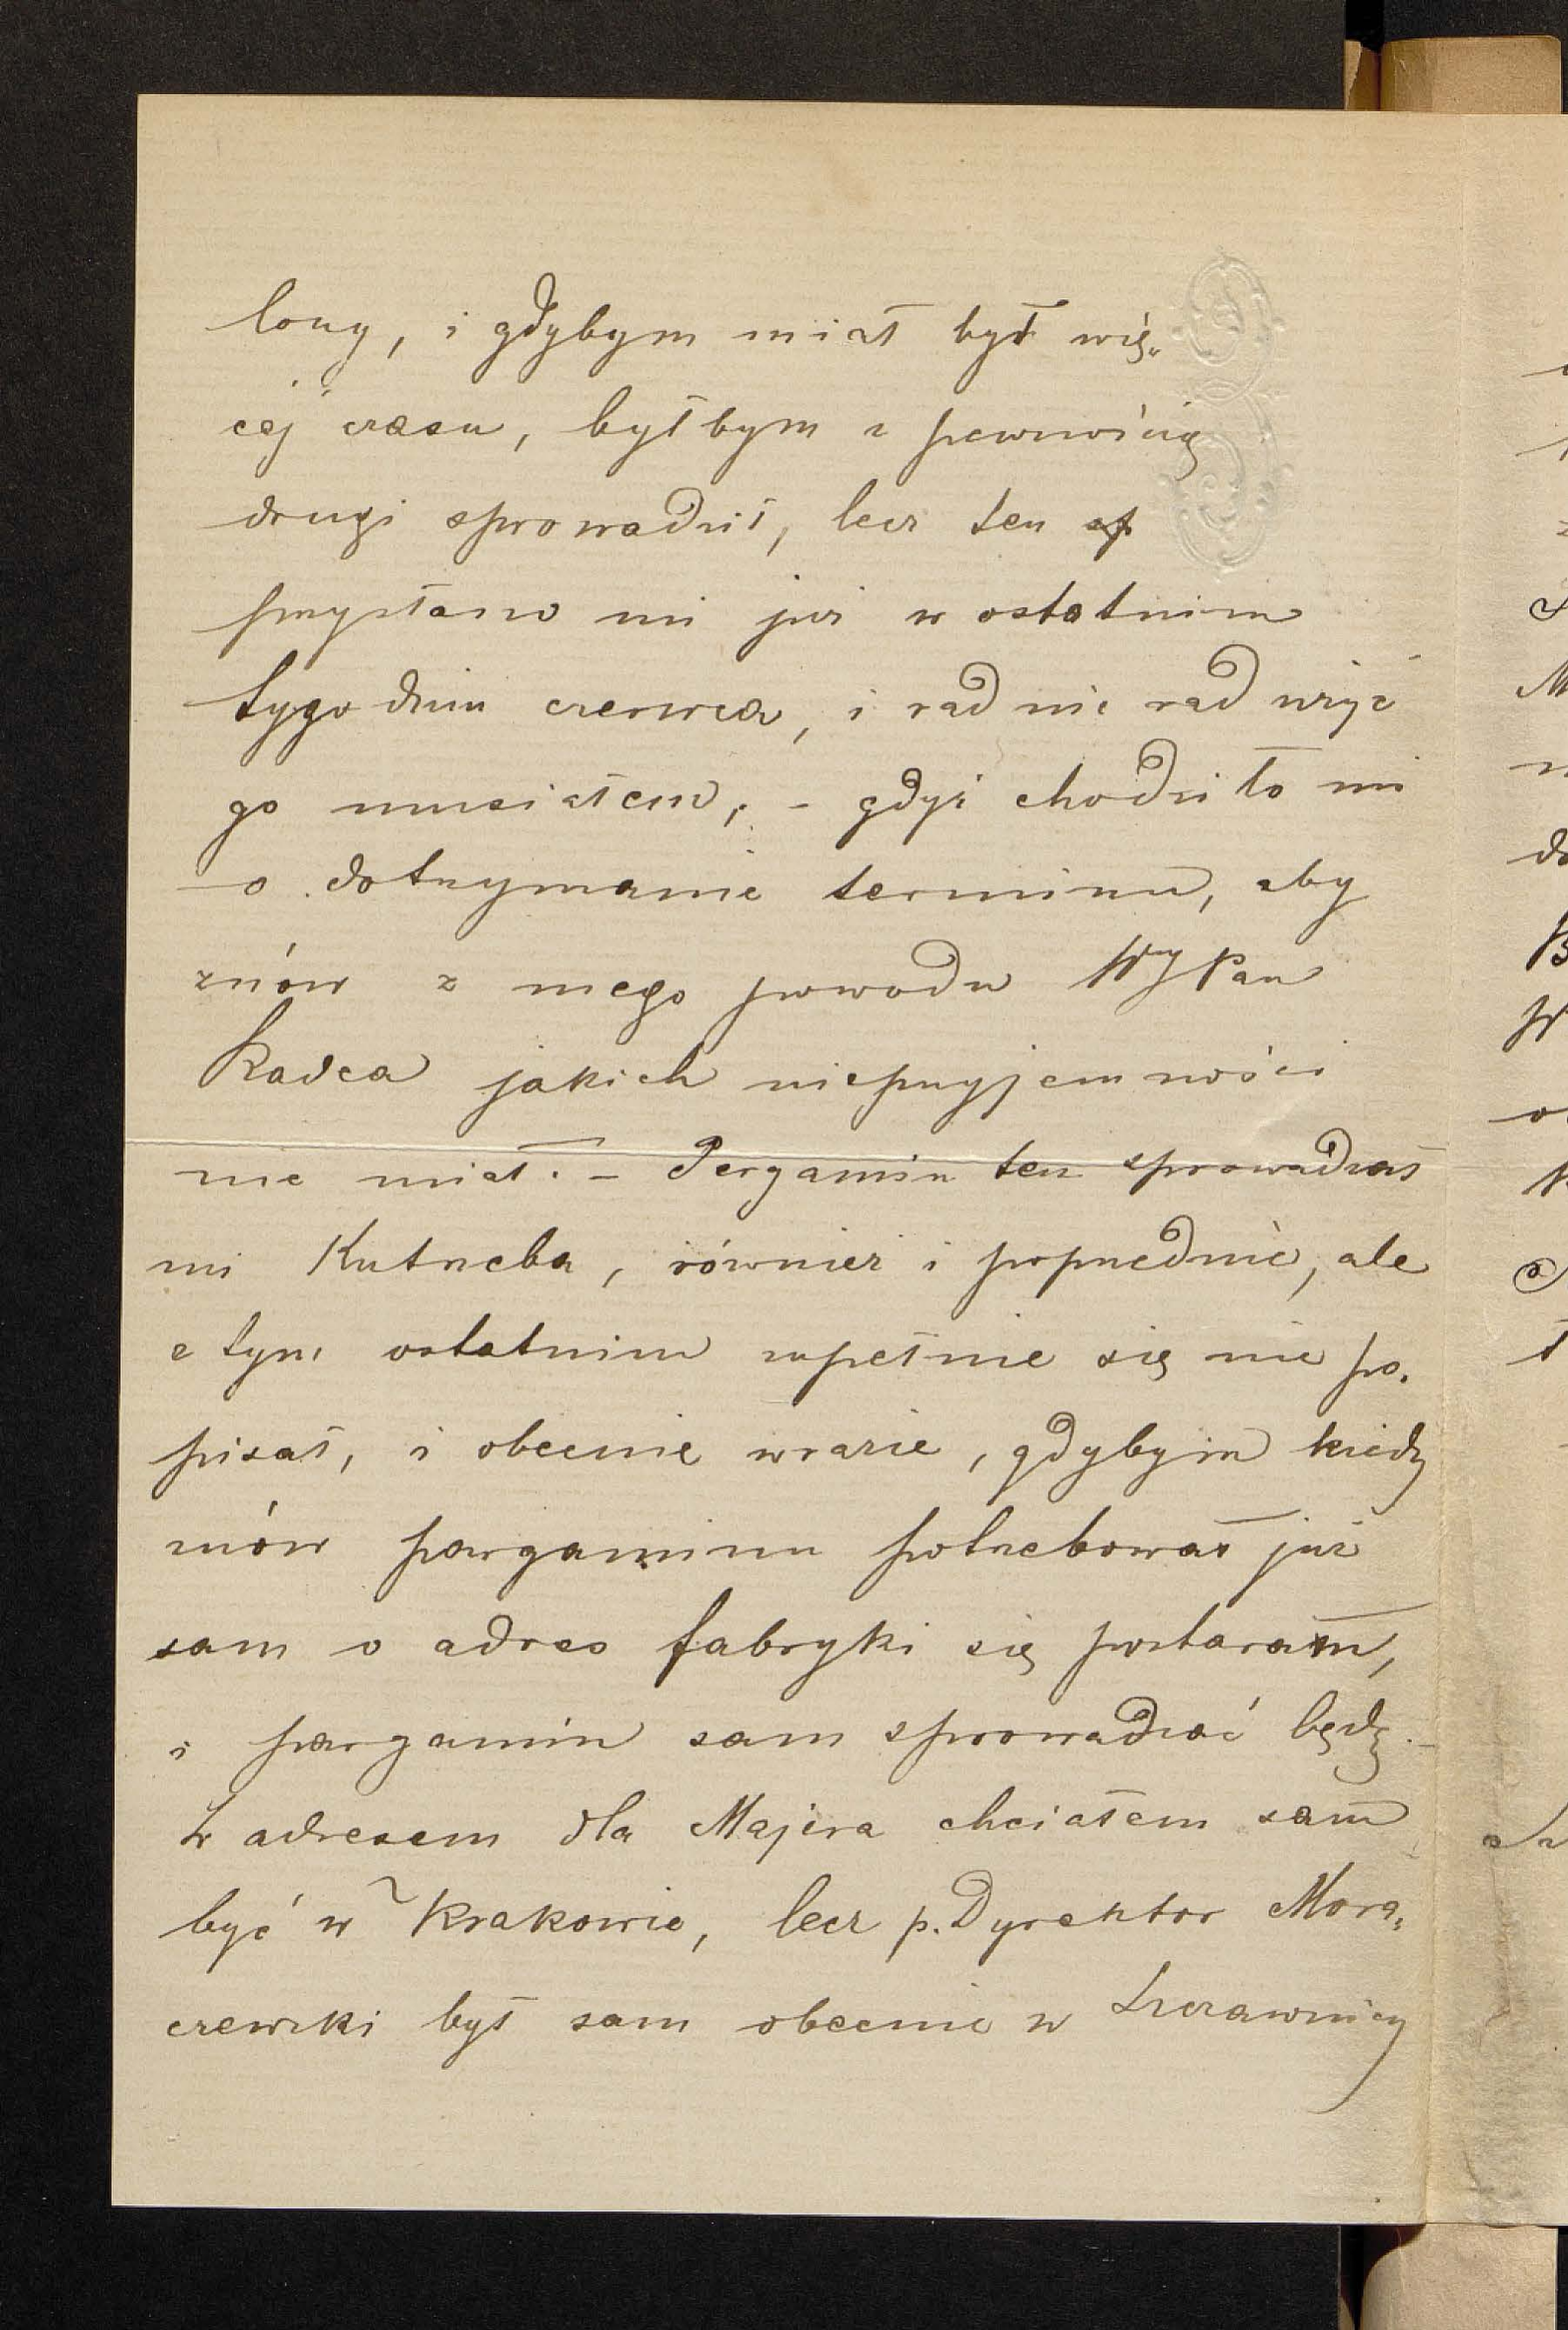 lony, i gdybym miał był wię„
cej czasu, byłbym z pewnością
drugi sprowadził, lecz ten
przysłano mi już w ostatnim
tygodniu czerwca, i rad nie rad użyć
go musiałem, – gdyż chodziło mi
o dotrzymanie terminu, aby
znów z mego powodu WyPan
Radca jakich nieprzyjemności
nie miał. – Pergamin ten sprowadzał
mi Kutrzeba, również i poprzednie, ale
z tym ostatnim zupełnie się nie po„
pisał, i obecnie w razie, gdybym kiedy
znów pargaminu potrzebował już
sam o adres fabryki się postaram,
i pargamin sam sprowadzać będę. –
Z adresem dla Majera chciałem sam
być w Krakowie, lecz p. Dyrektor Mora„
czewski był sam obecnie w Szczawnicy